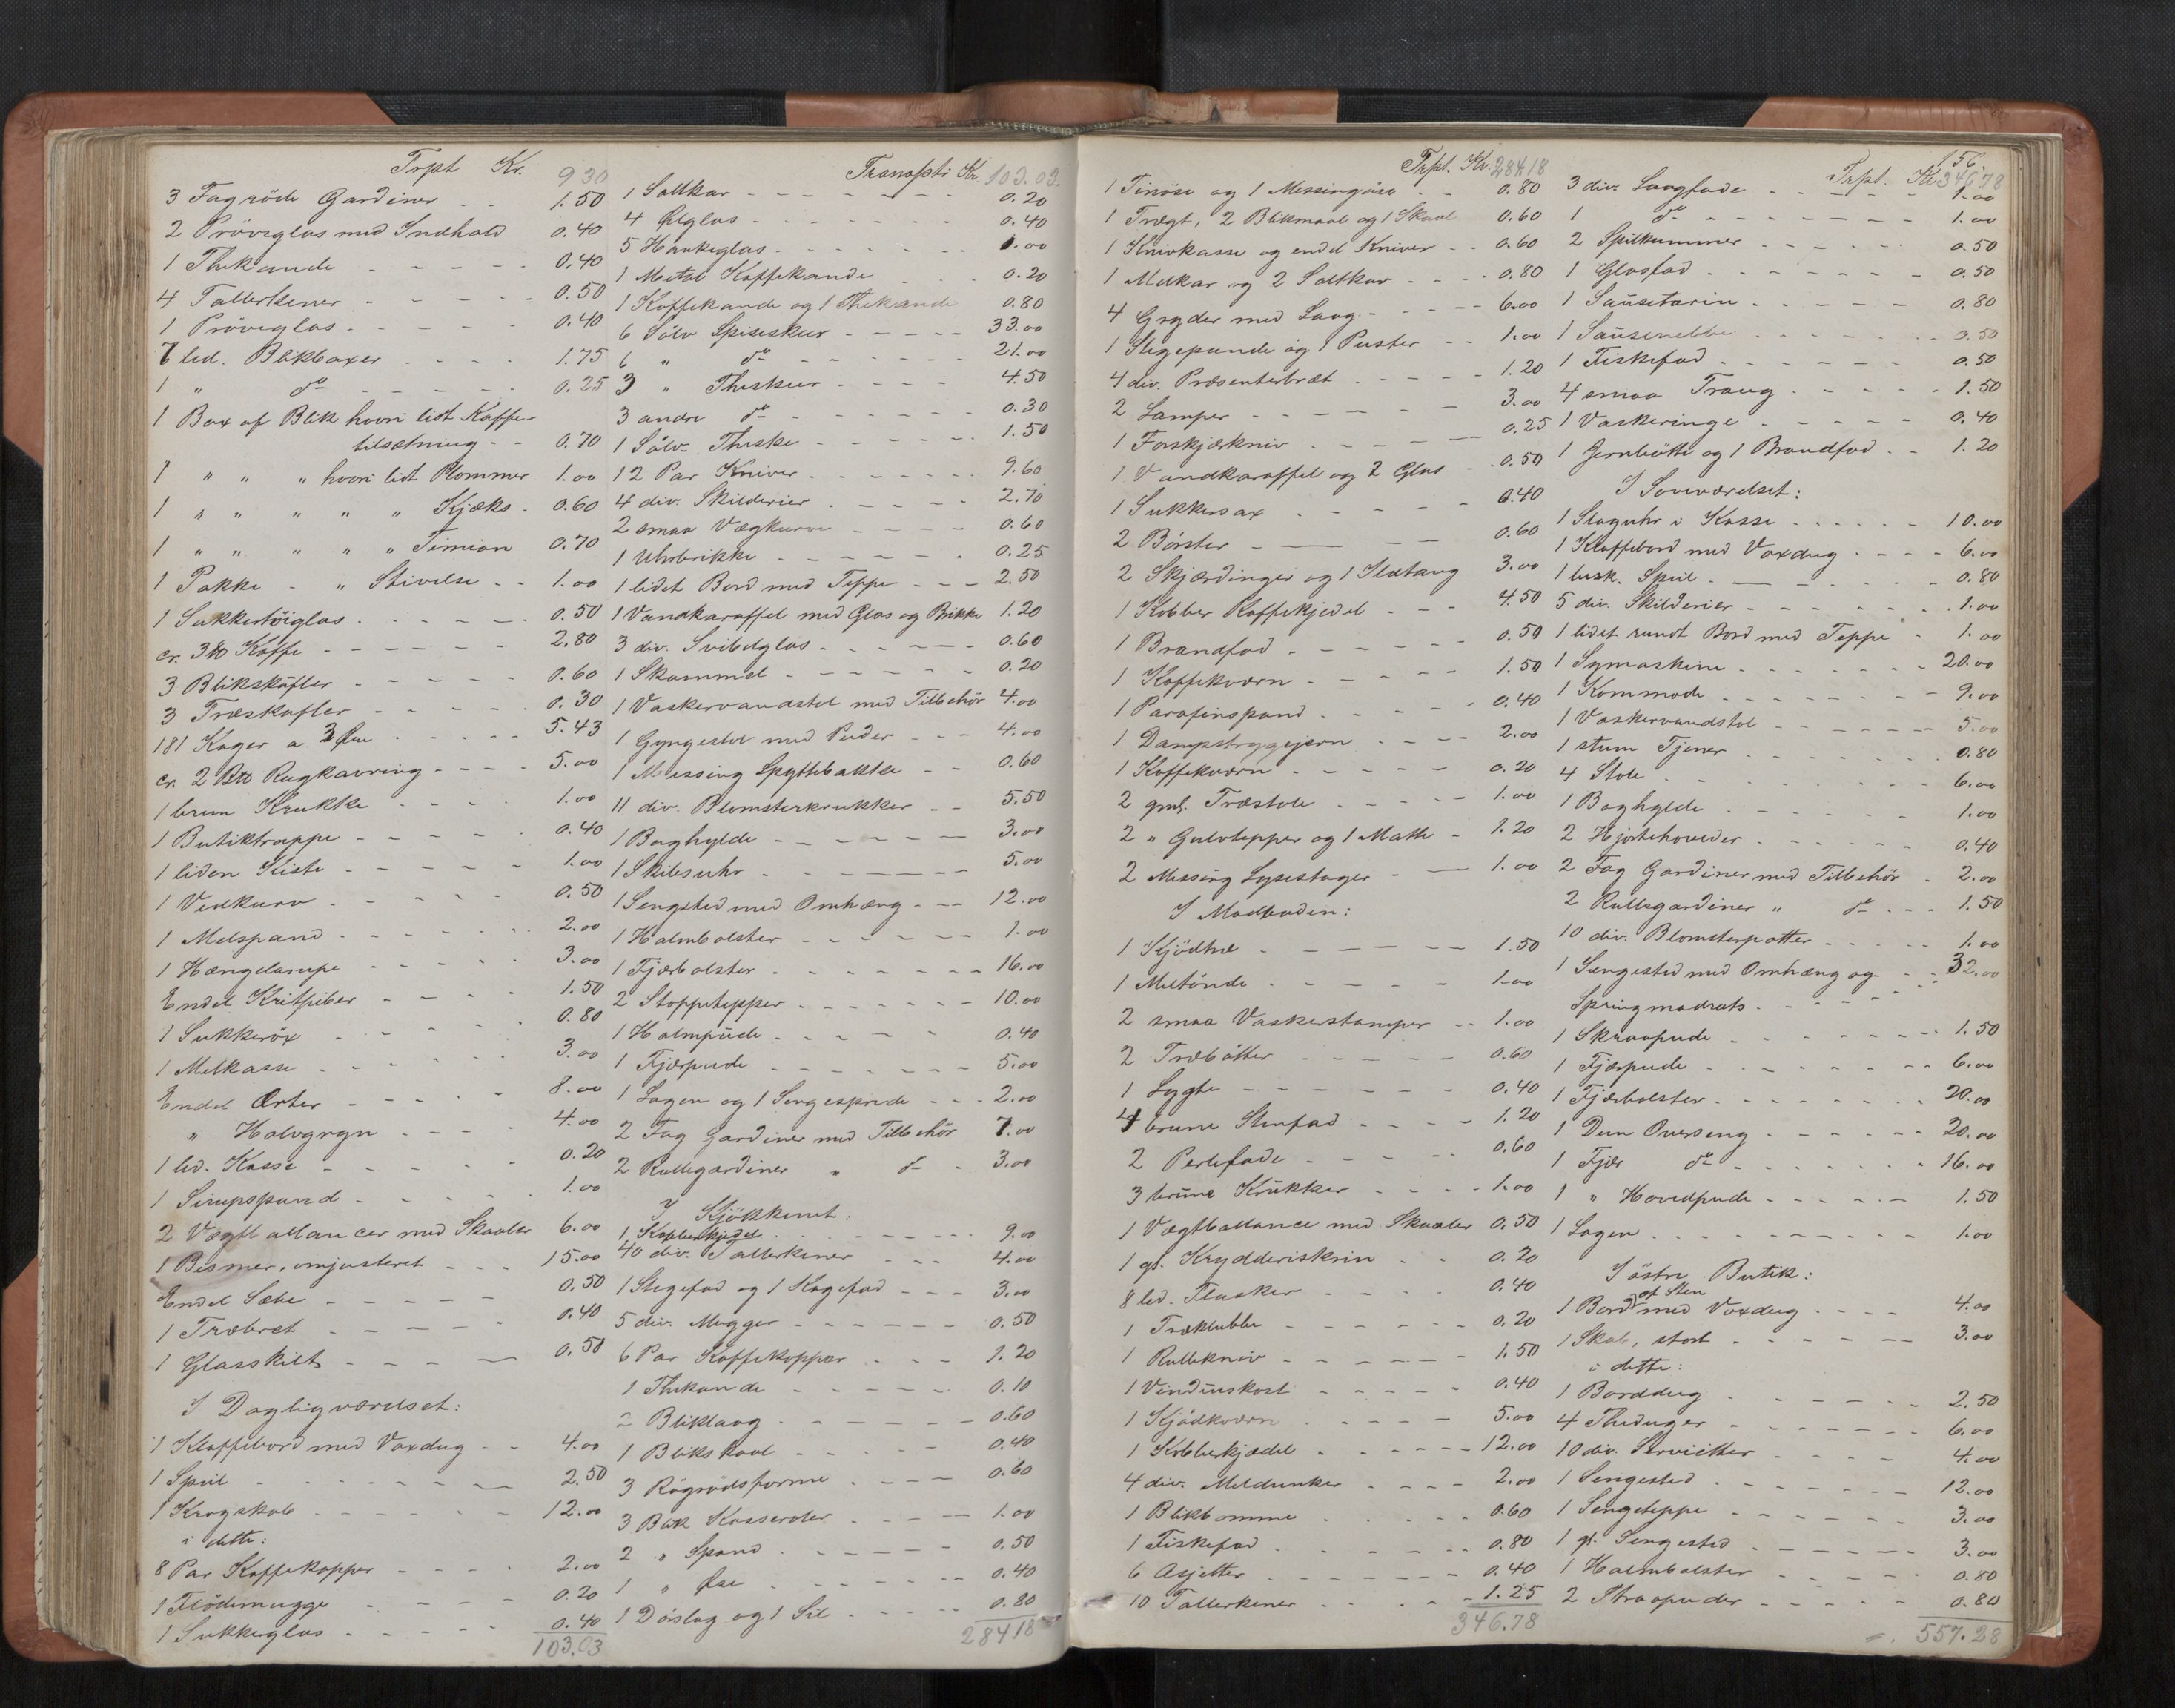 Trpt Kr. 930
3 Fag röde Gardiner 1.50
2 Pröveglas med Indhold 0.40
1 Thekande 0.40
4 Tallerkener 0.50
1 Pröveglas 0.40
7 led. Blikboxer 1.75
1 " do 0.25
1 Box af Blik hvori lidt Kaffe-
tilsætning 0.70
1 " " " hvori lidt Blommer 1.00
1 " " " " " Kjæks 0.60
1 " " " " " Timian 0.70
1 Pakke " Stivelse 1.00
1 Sukkertöiglas 0.50
cr. 3 ℔ Kaffe 2.80
3 Blikskåfler 0.60
3 Træskafler 0.30
181 Kager a 3 Øre 5.43
cr. 2 Btt Rugkavring 5.00
1 brun Krukke 1.00
1 Butiktrappe 0.40
1 liden Kiste 1.00
1 Vedkurv 0.50
1 Melspand 2.00
1 Hængelampe 3.00
Endel Kritpiber 1.50
1 Sukkeröx 0.80
1 Melkasse 3.00
Endel Erter 8.00
" Halvgryn 4.00
1 led. Kasse 0.20
1 Sirupspand 1.00
2 Vægtballancer med Skaaler 6.00
1 Bismer, omjusteret 15.00
Endel Sæbe 0.50
1 Træbret 0.40
1 Glasskilt 0.50
I Dagligværelset:
1 Klaffebord med Voxdug 4.00
1 Speil 2.50
1 Krogskab 12.00
i dette:
8 Par Kaffekopper 2.00
1 Flödemugge 0.20
1 Sukkerglas 0.40
103.03
Transpt: Kr. 103.03.
1 Saltkar 0.20
4 Ølglas 0.40
5 Hankeglas 1.00
1 Metal Kaffekande 0.20
1 Kaffekande og 1 Thekande 0.80
6 Sölv Spiseskeer 33.00
6 " do 21.00
3 " Theskeer 4.50
3 andre do 0.30
1 Sölv Theske 1.50
12 Par Kniver 9.60
4 div. Skilderier 2.70
2 smaa Vægkurve 0.60
1 Uhrbrikke 0.25
1 lidet Bord med Teppe 2.50
1 Vandkaraffel med Glas og Brikke 1.20
3 div. Svibelglas 0.60
1 Skammel 0.20
1 Vaskervandstol med Tilbehör 4.00
1 Gyngestol med Puder 4.00
1 Messing Spyttebakke 0.60
11 div. Blomsterkrukker 5.50
1 Boghylde 3.00
1 Skibsuhr 5.00
1 Sengsted med Omhæng 12.00
1 Halmbolster 1.00
1 Fjærbolster 16.00
2 Stoppetepper 10.00
1 Halmpude 0.40
1 Fjærpude 5.00
1 Lagen og 1 Sengesprede 2.00
2 Fag Gardiner med Tilbehör 7.00
2 Rullegardiner " do 3.00
I Kjökkenet:
1 Kobberkjedel 9.00
40 div. Tallerkener 4.00
1 Stegefad og 1 Kagefad 3.00
5 div. Mugger 0.50
6 Par Kaffekopper 1.20
1 Thekande 0.10
2 Bliklaag 0.60
1 Blikskaal 0.40
3 Rögrödsforme 0.60
3 Blik Kasseroler 1.00
2 " Spand 0.50
1 " Øse 0.40
1 Dörslag og 1 Sil 0.80
28418
Trpt. Kr. 28418
1 Tinöse og 1 Messingöse 0.80
1 Trægt, 2 Blikmaal og 1 Skaal 0.60
1 Knivkasse og endel Kniver 0.60
1 Melkar og 2 Saltkar 0.80
4 Gryder med Laag 6.00
1 Stegepande og 1 Puster 1.00
4 div. Præsenterbræt 1.20
2 Lamper 3.00
1 Forskjærkniv 0.25
1 Vandkaraffel og 2 Glas 0.50
1 Sukkersax 0.40
2 Börster 0.60
2 Skjærdinger og 1 Ildtang 3.00
1 Kobber Kaffekjedel 4.50
1 Brandfad 0.50
1 Kaffekværn 1.50
1 Parafinspand 0.40
1 Dampstrygejern 2.00
1 Kaffekværn 0.20
2 gml. Træstole 1.00
2 " Gulvtepper og 1 Matte 1.20
2 Messing Lysestager 1.00
I Madboden:
1 Kjödtræ 1.50
1 Meltönde 1.00
2 smaa Vaskerstamper 1.00
2 Træbötter 0.60
1 Lygte 0.40
4 brune Stenfad 1.20
2 Perlefade 0.60
3 brune Krukker 1.00
1 Vægtballance med Skaaler 0.50
1 gl. Krydderiskrin 0.20
8 led. Flasker 0.40
1 Træklubbe 0.20
1 Rullekniv 1.50
1 Vindüskost 0.40
1 Kjödkværn 5.00
1 Kobberkjædel 12.00
4 div. Meldunker 2.00
1 Blikbomme 0.60
1 Fiskefad 0.80
6 Asjetter 0.40
10 Tallerkener 1.25
346.78
156.
Trpt. Kr 346.78
3 div. Laagfade 1.00
1 do 1.00
2 Spilkummer 0.50
1 Glasfad 0.50
1 Saüseterin 0.80
1 Saüsenebbe 0.50
1 Fiskefad 0.50
4 smaa Traug 1.50
1 Vaskeringe 0.40
1 Jernbötte og 1 Brandfad 1.20
I Soveværelset:
1 Slaguhr i Kasse 10.00
1 Klaffebord med Voxdug 6.00
1 husk. Speil 0.80
5 div. Skilderier 1.00
1 lidet rundt Bord med Teppe 1.00
1 Symaskine 20.00
1 Kommode 9.00
1 Vaskervandstol 5.00
1 stum Tjener 0.80
4 Stole 6.00
1 Boghylde 1.00
2 Hjortehoveder 0.40
2 Fag Gardiner med Tilbehör 2.00
2 Rullegardiner " do 1.50
10 div. Blomsterpotter 1.00
1 Sengested med Omhæng og 32.00
Springmadrats
1 Skraapude 1.50
1 Fjærpude 6.00
1 Fjærbolster 20.00
1 Dun Overseng 20.00
1 Fjær do 16.00
1 " Hovedpude 1.50
1 Lagen 1.00
I östre Butik:
af Sten
1 Bord med Voxdug 4.00
1 Skab, stort 3.00
i dette:
1 Borddug 2.50
4 Theduger 6.00
10 div. Servietter 4.00
1 Sengested 12.00
1 Sengeteppe 3.00
1 gl. Sengested 3.00
1 Halmbolster 0.80
2 Skraapuder 0.80
557.28